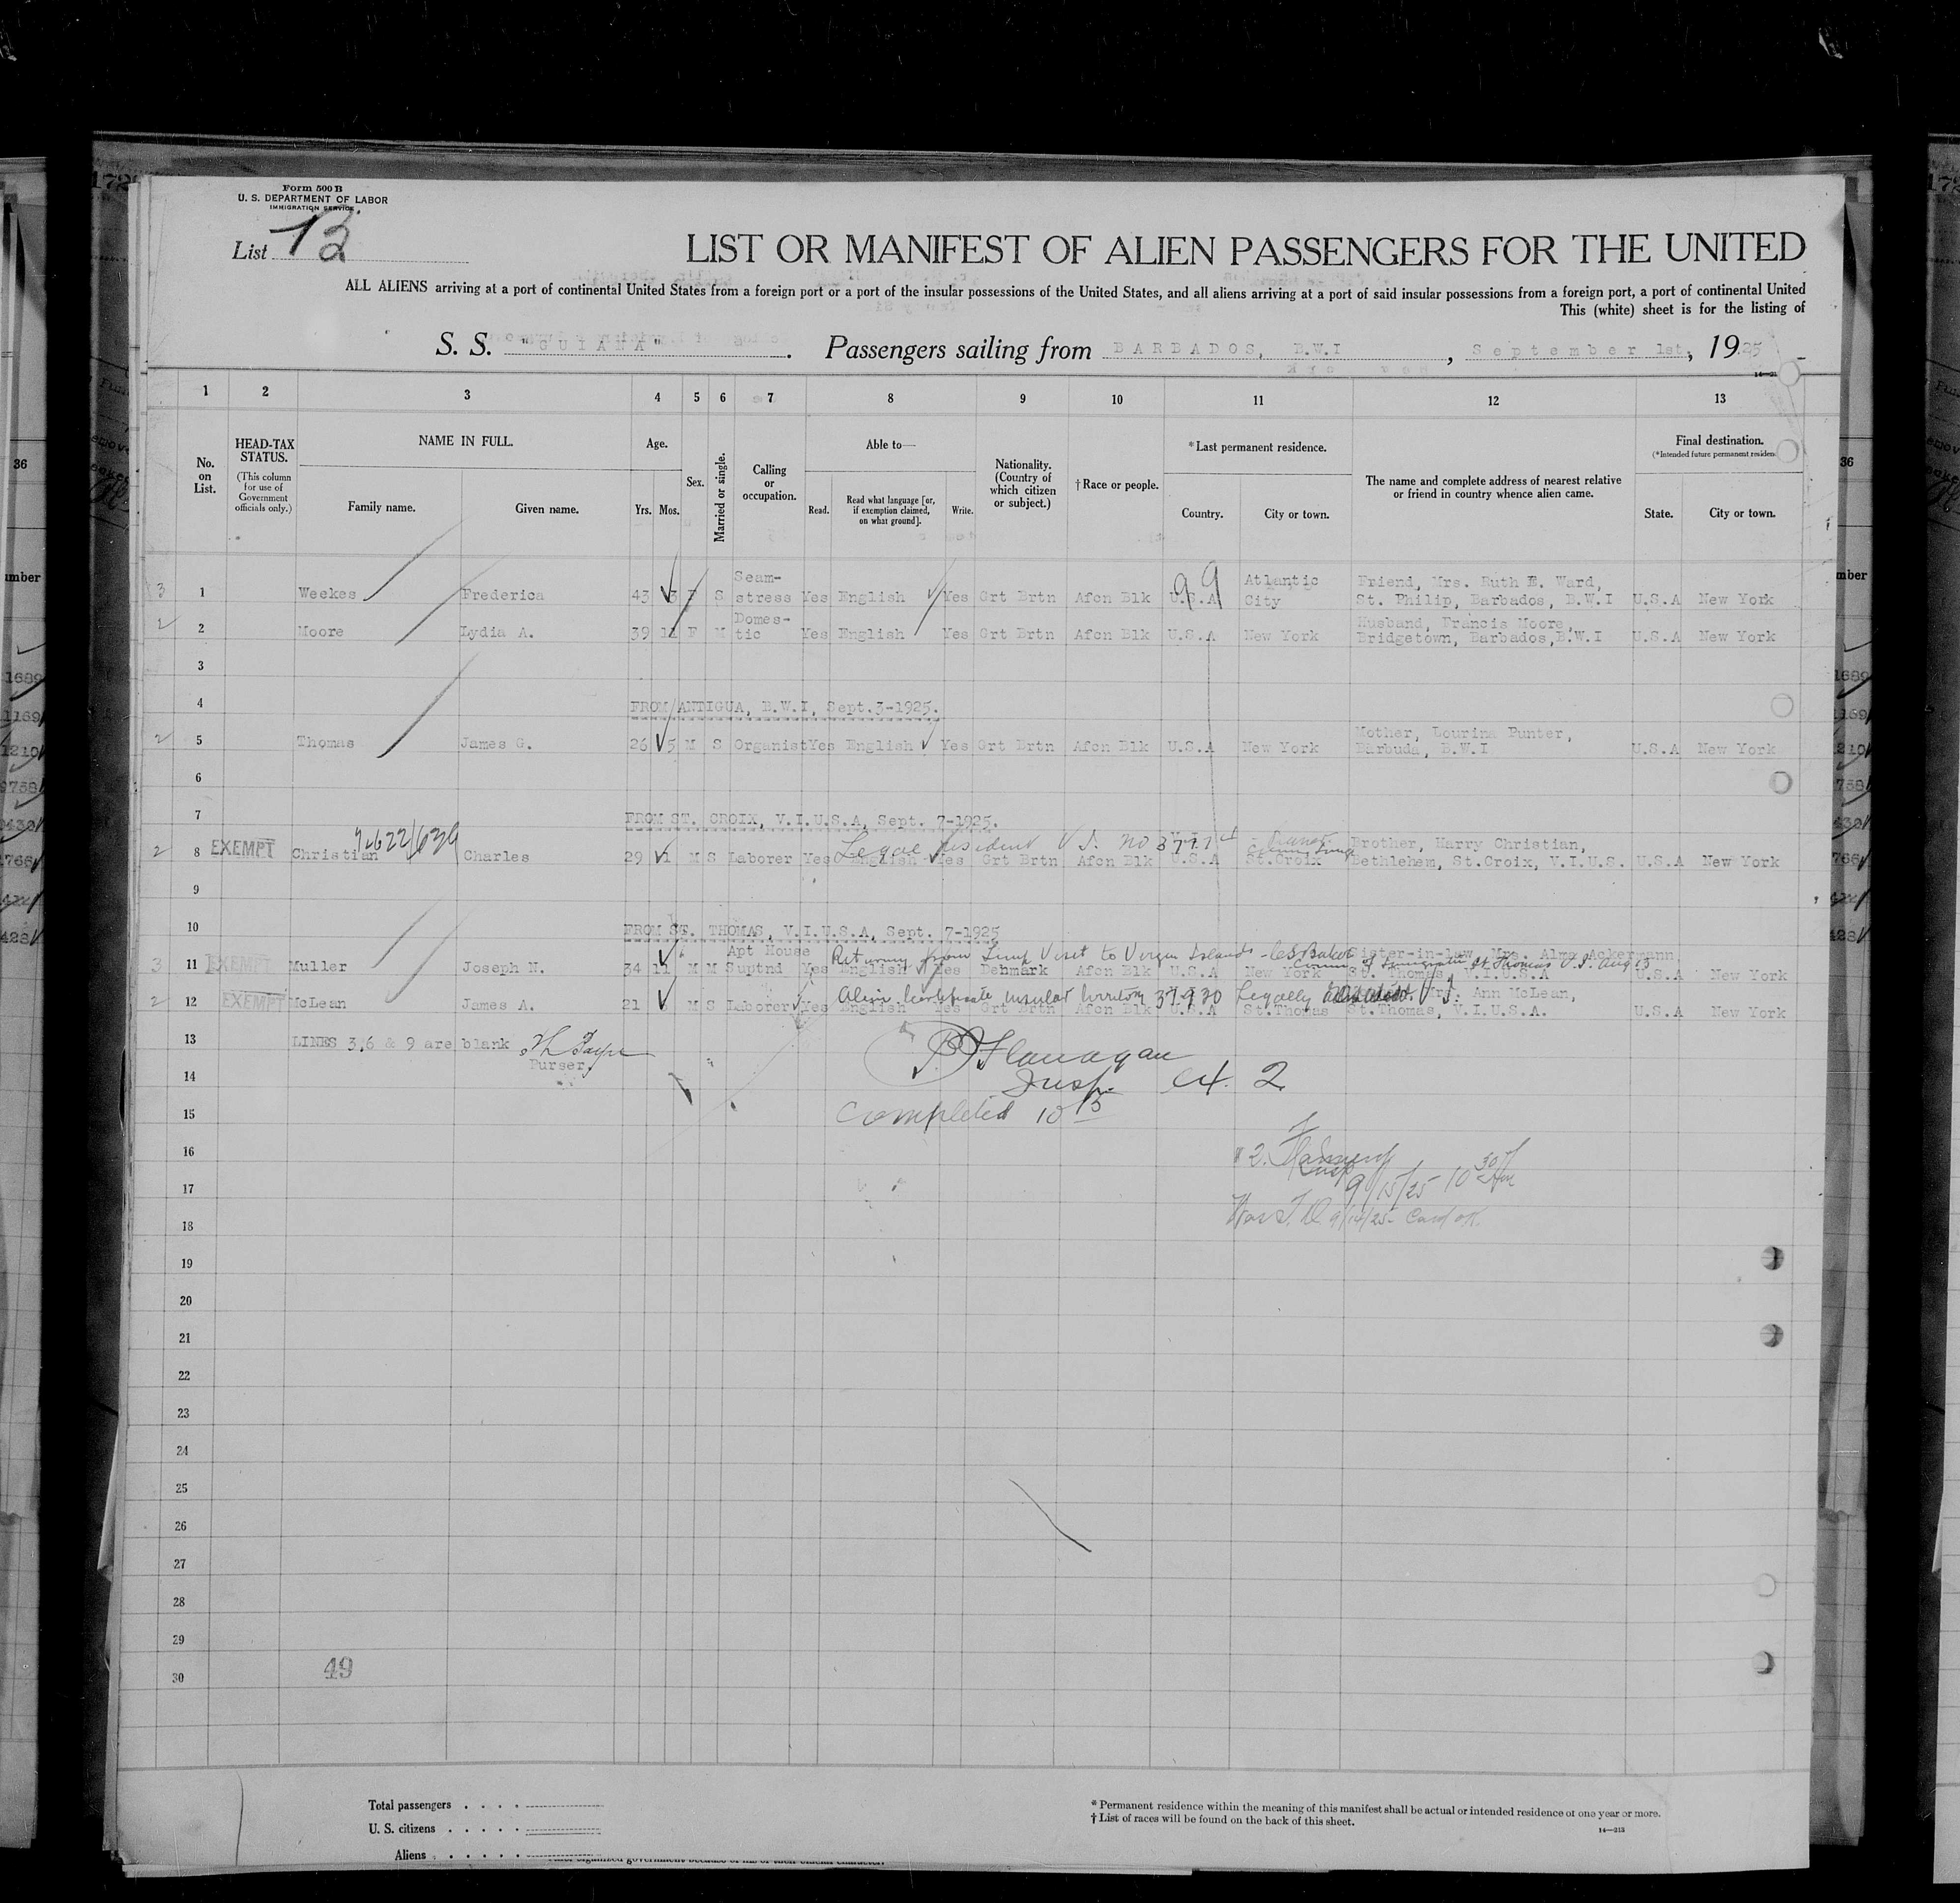 Form 500 B
U. S. DEPARTMENT OF LABOR
IMMIGRATION SERVICE
List 13
LIST OR MANIFEST OF ALIEN PASSENGERS FOR THE UNITED
ALL ALIENS arriving at a port of continental United States from a foreign port or a port of the insular possessions of the United States, and all aliens arriving at a port of said insular possessions from a foreign port, a port of continental United
This (white) sheet is for the listing of
S. S. "GUIANA". Passengers sailing from BARBADOS, B.W.I, September 1st, 1925
1 2 3 4 5 6 7 8 9 10 11 12 13
No. on List.
HEAD-TAX STATUS.
(This column for use of Government officials only.)
NAME IN FULL.
Family name. Given name.
Age.
Yrs. Mos.
Sex.
Married or single.
Calling or occupation.
Able to—
Read. Read what language [or, if exemption claimed, on what ground]. Write.
Nationality. (Country of which citizen or subject.)
†Race or people.
*Last permanent residence.
Country. City or town.
The name and complete address of nearest relative or friend in country whence alien came.
Final destination.
(*Intended future permanent residence
State. City or town.
3 1 Weekes Frederica 43 3 F S Seam-stress Yes English Yes Grt Brtn Afcn Blk U.S.A Atlantic City Friend, Mrs. Ruth E. Ward, St. Philip, Barbados, B.W.I U.S.A New York
99
2 2 Moore Lydia A. 39 11 F M Domes-tic Yes English Yes Grt Brtn Afcn Blk U.S.A New York Husband, Francis Moore, Bridgetown, Barbados, B.W.I U.S.A New York
3
4 FROM ANTIGUA, B.W.I, Sept.3-1925.
2 5 Thomas James G. 26 5 M S Organist Yes English Yes Grt Brtn Afcn Blk U.S.A New York Mother, Lourina Punter, Barbuda, B.W.I U.S.A New York
6
7 FROM ST. CROIX, V.I.U.S.A, Sept. 7-1925.
Legal resident V I. No
2 8 EXEMPT Christian Charles 29 1 M S Laborer Yes English Yes Grt Brtn Afcn Blk U.S.A St.Croix Brother, Harry Christian, Bethlehem, St.Croix, V.I.U.S. U.S.A New York
9
10 FROM ST. THOMAS, V.I.U.S.A, Sept. 7-1925
Returning from Temp Visit to Virgin Islands - C S Baker
Comm of Immigration St Thomas V.I. Aug 13
3 11 EXEMPT Muller Joseph N. 34 11 M M Apt House Suptnd Yes English Yes Denmark Afcn Blk U.S.A New York Sister-in-law, Mrs. Alma Ackermann, St. Thomas, V.I.U.S.A U.S.A New York
Alien Certificate Insular Territory 37930 Legally V I
2 12 EXEMPT McLean James A. 21 M S Laborer Yes English Yes Grt Brtn Afcn Blk U.S.A St.Thomas Mrs. Ann McLean, St.Thomas, V.I.U.S.A. U.S.A New York
13 LINES 3,6 & 9 are blank
Purser.
Flanagan
14 Insp. 2
15 Completed 10
16
Insp
17 9/15/25 10 30
18 9/14/25
19
20
21
22
23
24
25
26
27
28
29
30
49
Total passengers
U. S. citizens
Aliens
* Permanent residence within the meaning of this manifest shall be actual or intended residence of one year or more.
† List of races will be found on the back of this sheet.
14—213